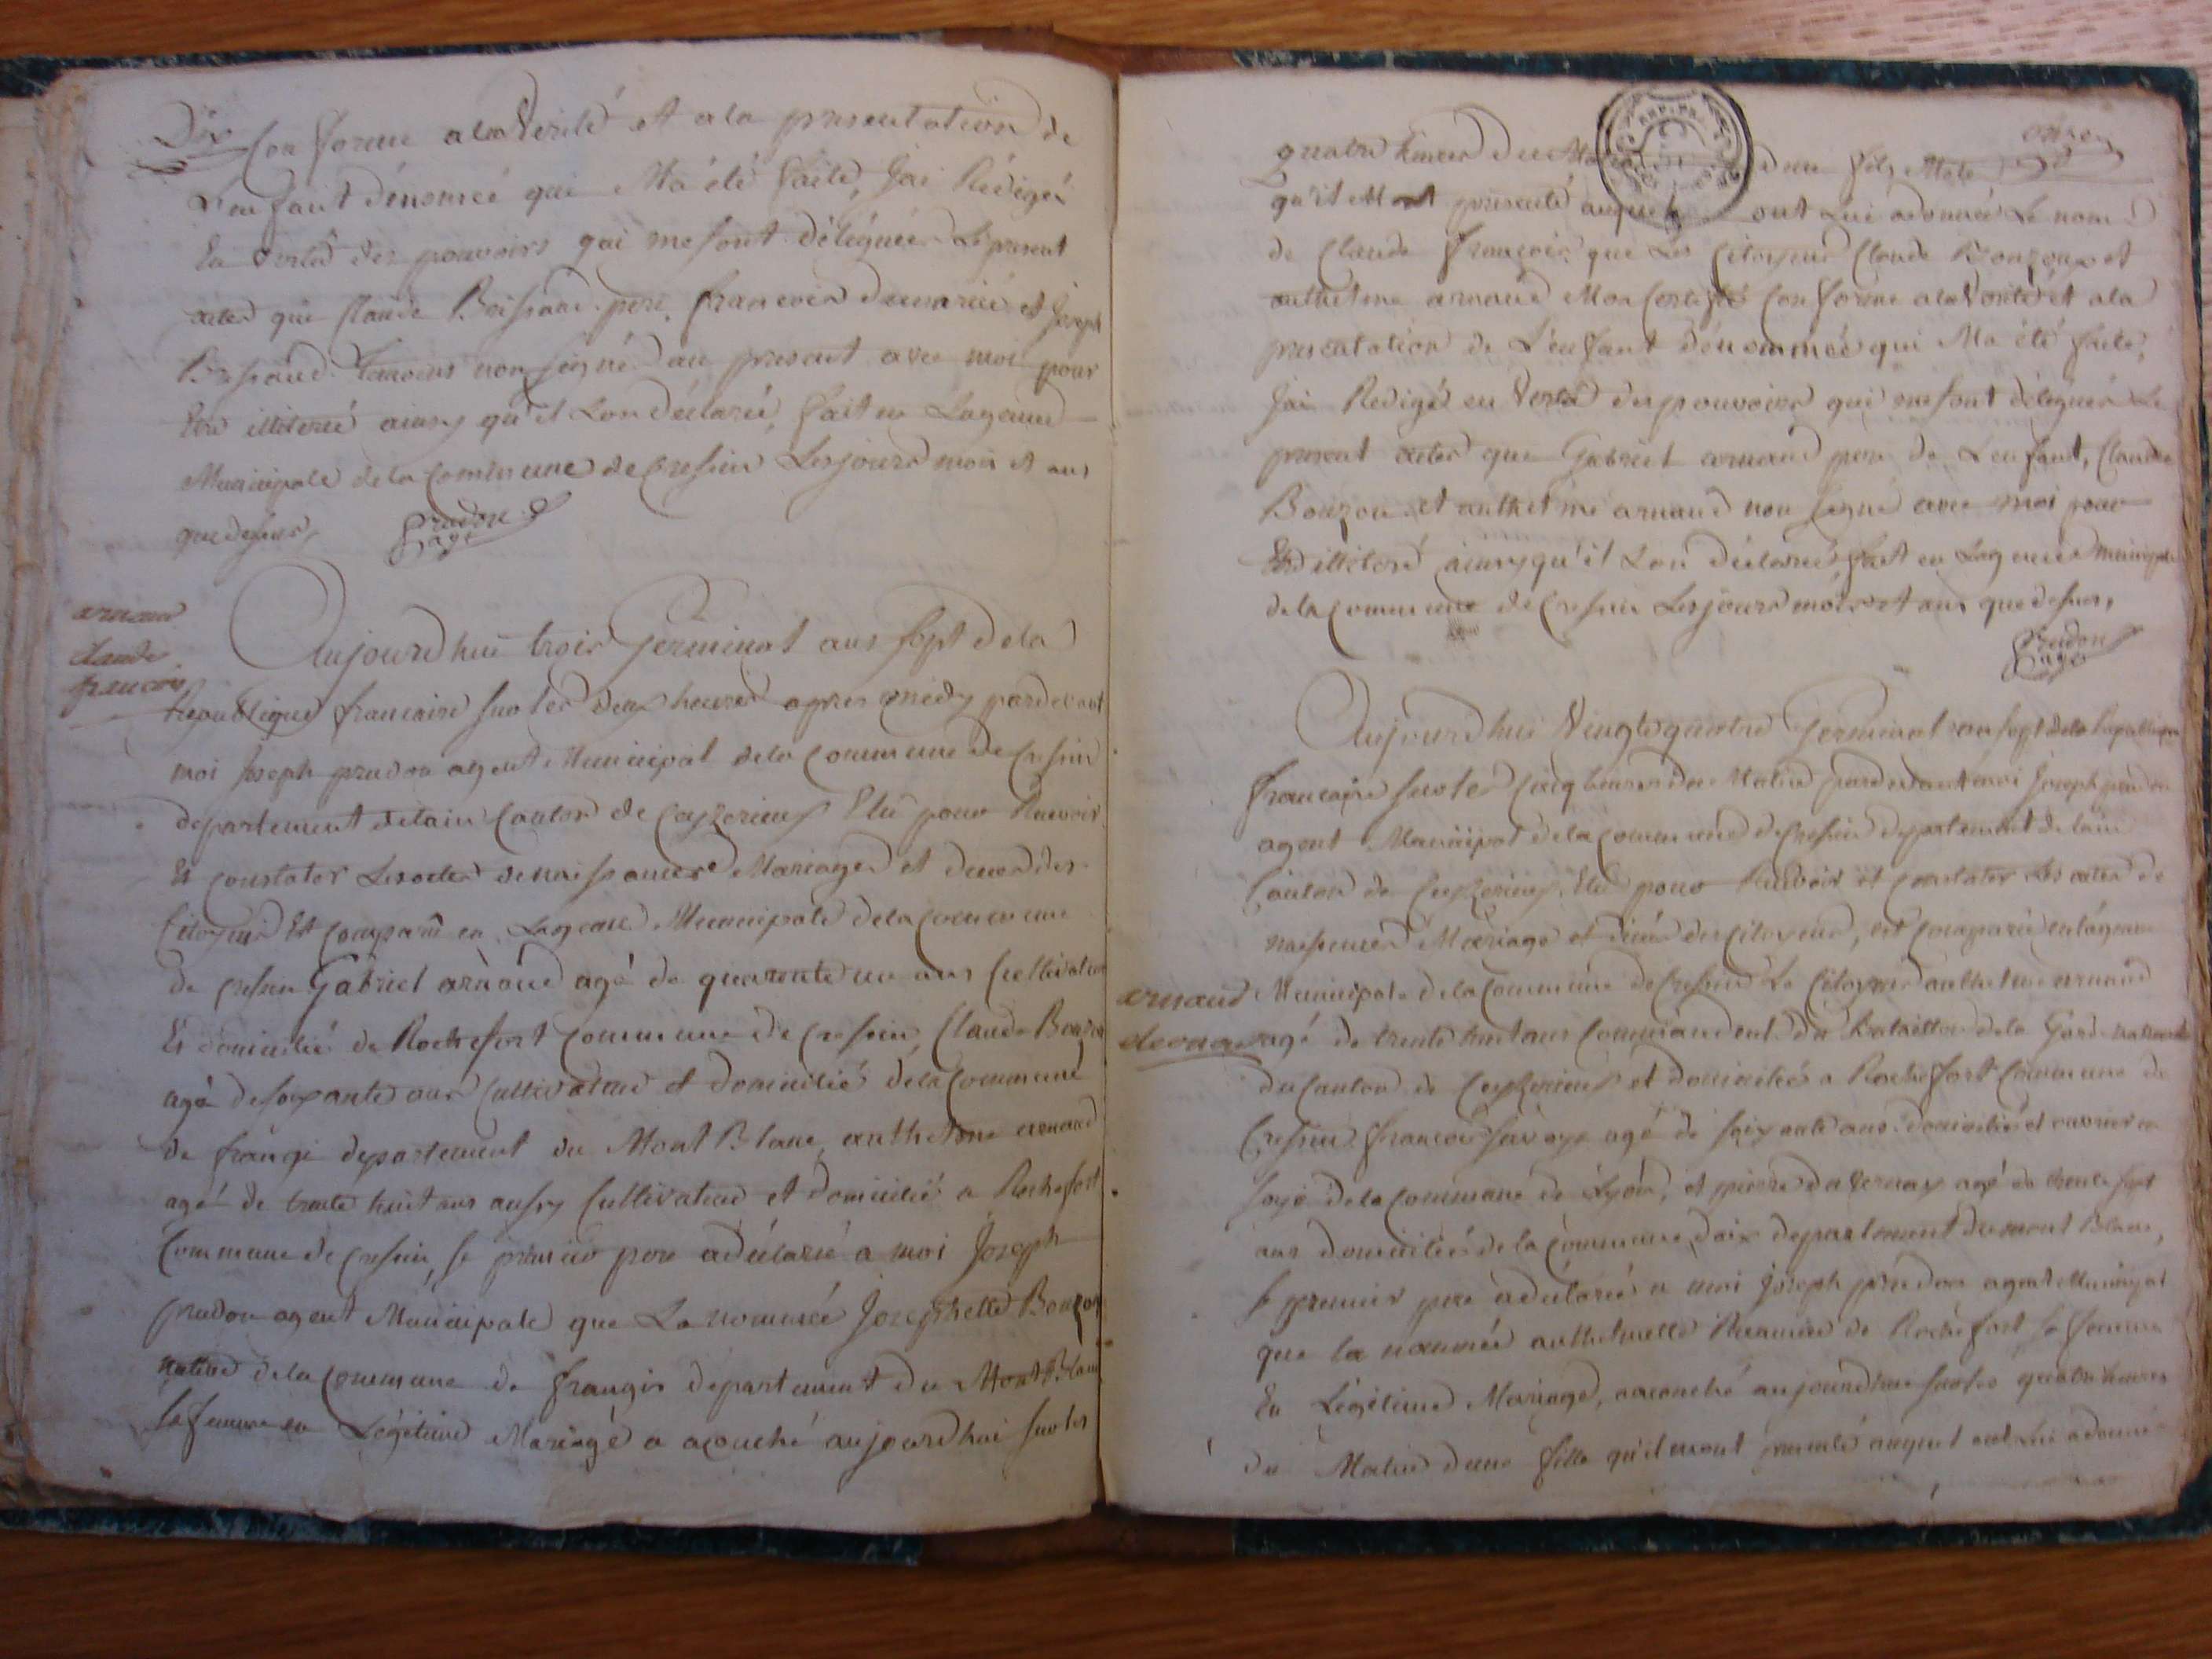 Dix
Conforme a la Verité et a la presentation de
L'enfant dénomée qui M'a été faite, J'ai Rédigée
En vertû des pouvoirs qui me sont déléguée Le present
acte que Claude Boissand pere, francois et Joseph
Boissand temoins non signé au present avec moi pour
Etre illiteré ainsy qu'il L'on déclaré, fait en Lagence
Municipale de la Commune de Cressin Lesjours mois et ans
que dessus,
prudon
agt
arnaud
Claude
francois
Aujourd'hui trois Germinal ans sept dela
Republique francaise sur les deux heures apres midy pardevant
moi Joseph prudon agent Municipal dela Commune de Cressin
departement delain Canton de Ceyzerieux Elu pour Recevoir
Et constater Les actes de naissances Mariages et deces des
Citoyens Est Comparû en Lagence Municipale dela Commune
de Cressin Gabriel arnaud agé de quarente un ans Cultivateur
Et domicilié de Rochefort Commune de Cressin, Claude Bouzon
agé de soixante ans Cultivateur et domicilié dela Commune
de frangi departement du Mont Blanc, anthelme arnaud
agé de trente huit ans aussy Cultivateur et domicilié a Rochefort
Commune de Cressin, le premier pere a déclaré a moi Joseph
prudon agent Municipale que La nommée Josephette Bouzon
native dela Commune de frangis departement du Mont Blanc
sa femme en Légitime Mariage a acouché aujourdhui sur les
onze
quatre heures du d'un fils Male
qu'il Mont presenté auquel ont Lui adonné Le nom
de Claude francois que Les Citoyens Claude Bouzon et
anthelme arnaud Mon Certifié Conforme a la Verité et a la
presentation de L'enfant dénommée qui Ma été faite,
J'ai Redigée en Vertû des pouvoirs qui me sont délégués Le
present acte que Gabriel arnaud pere de Lenfant, Claude
Bouzon et anthelme arnaud non signé avec moi pour
Etre illiteré ainsy qu'il Lon déclaré, fait en Lagence Municipale
dela Commune de Cressin Lesjours mois et ans que dessus,
prudon
agt
Aujourd'hui Vingt quatre Germinal an sept dela Republique
francaise sur les Cinq heures du Matin pardevant moi Joseph prudon
agent Municipal dela Commune de Cressin departement de lain
Canton de Ceyzerieux Elu pour Recevoir et Constater Les actes de
naissances Mariage et décés des Citoyens, est Comparu en Lagence
arnaud
Municipale dela Commune de Cressin Le Citoyen anthelme arnaud
agé de trente huit ans Commandent du Bataillon dela Garde nationale
du Canton de Ceyzerieux et domicilié a Rochefort Commune de
Cressin francois Savoye agé de soixante ans domicilié et ouvrier en
soye dela Commune de Lyon, et pierre agé de trente sept
ans domicilié dela Commune daix departement du mont Blanc,
le premier pere a déclaré a moi Joseph prudon agent Municipal
que la nommée anthelmette de Rochefort sa femme
En Légitime Mariage, a acouché aujourdhui sur les quatre heures
du Matin d'une fille qu'il mont presenté auquel ont Lui adonné